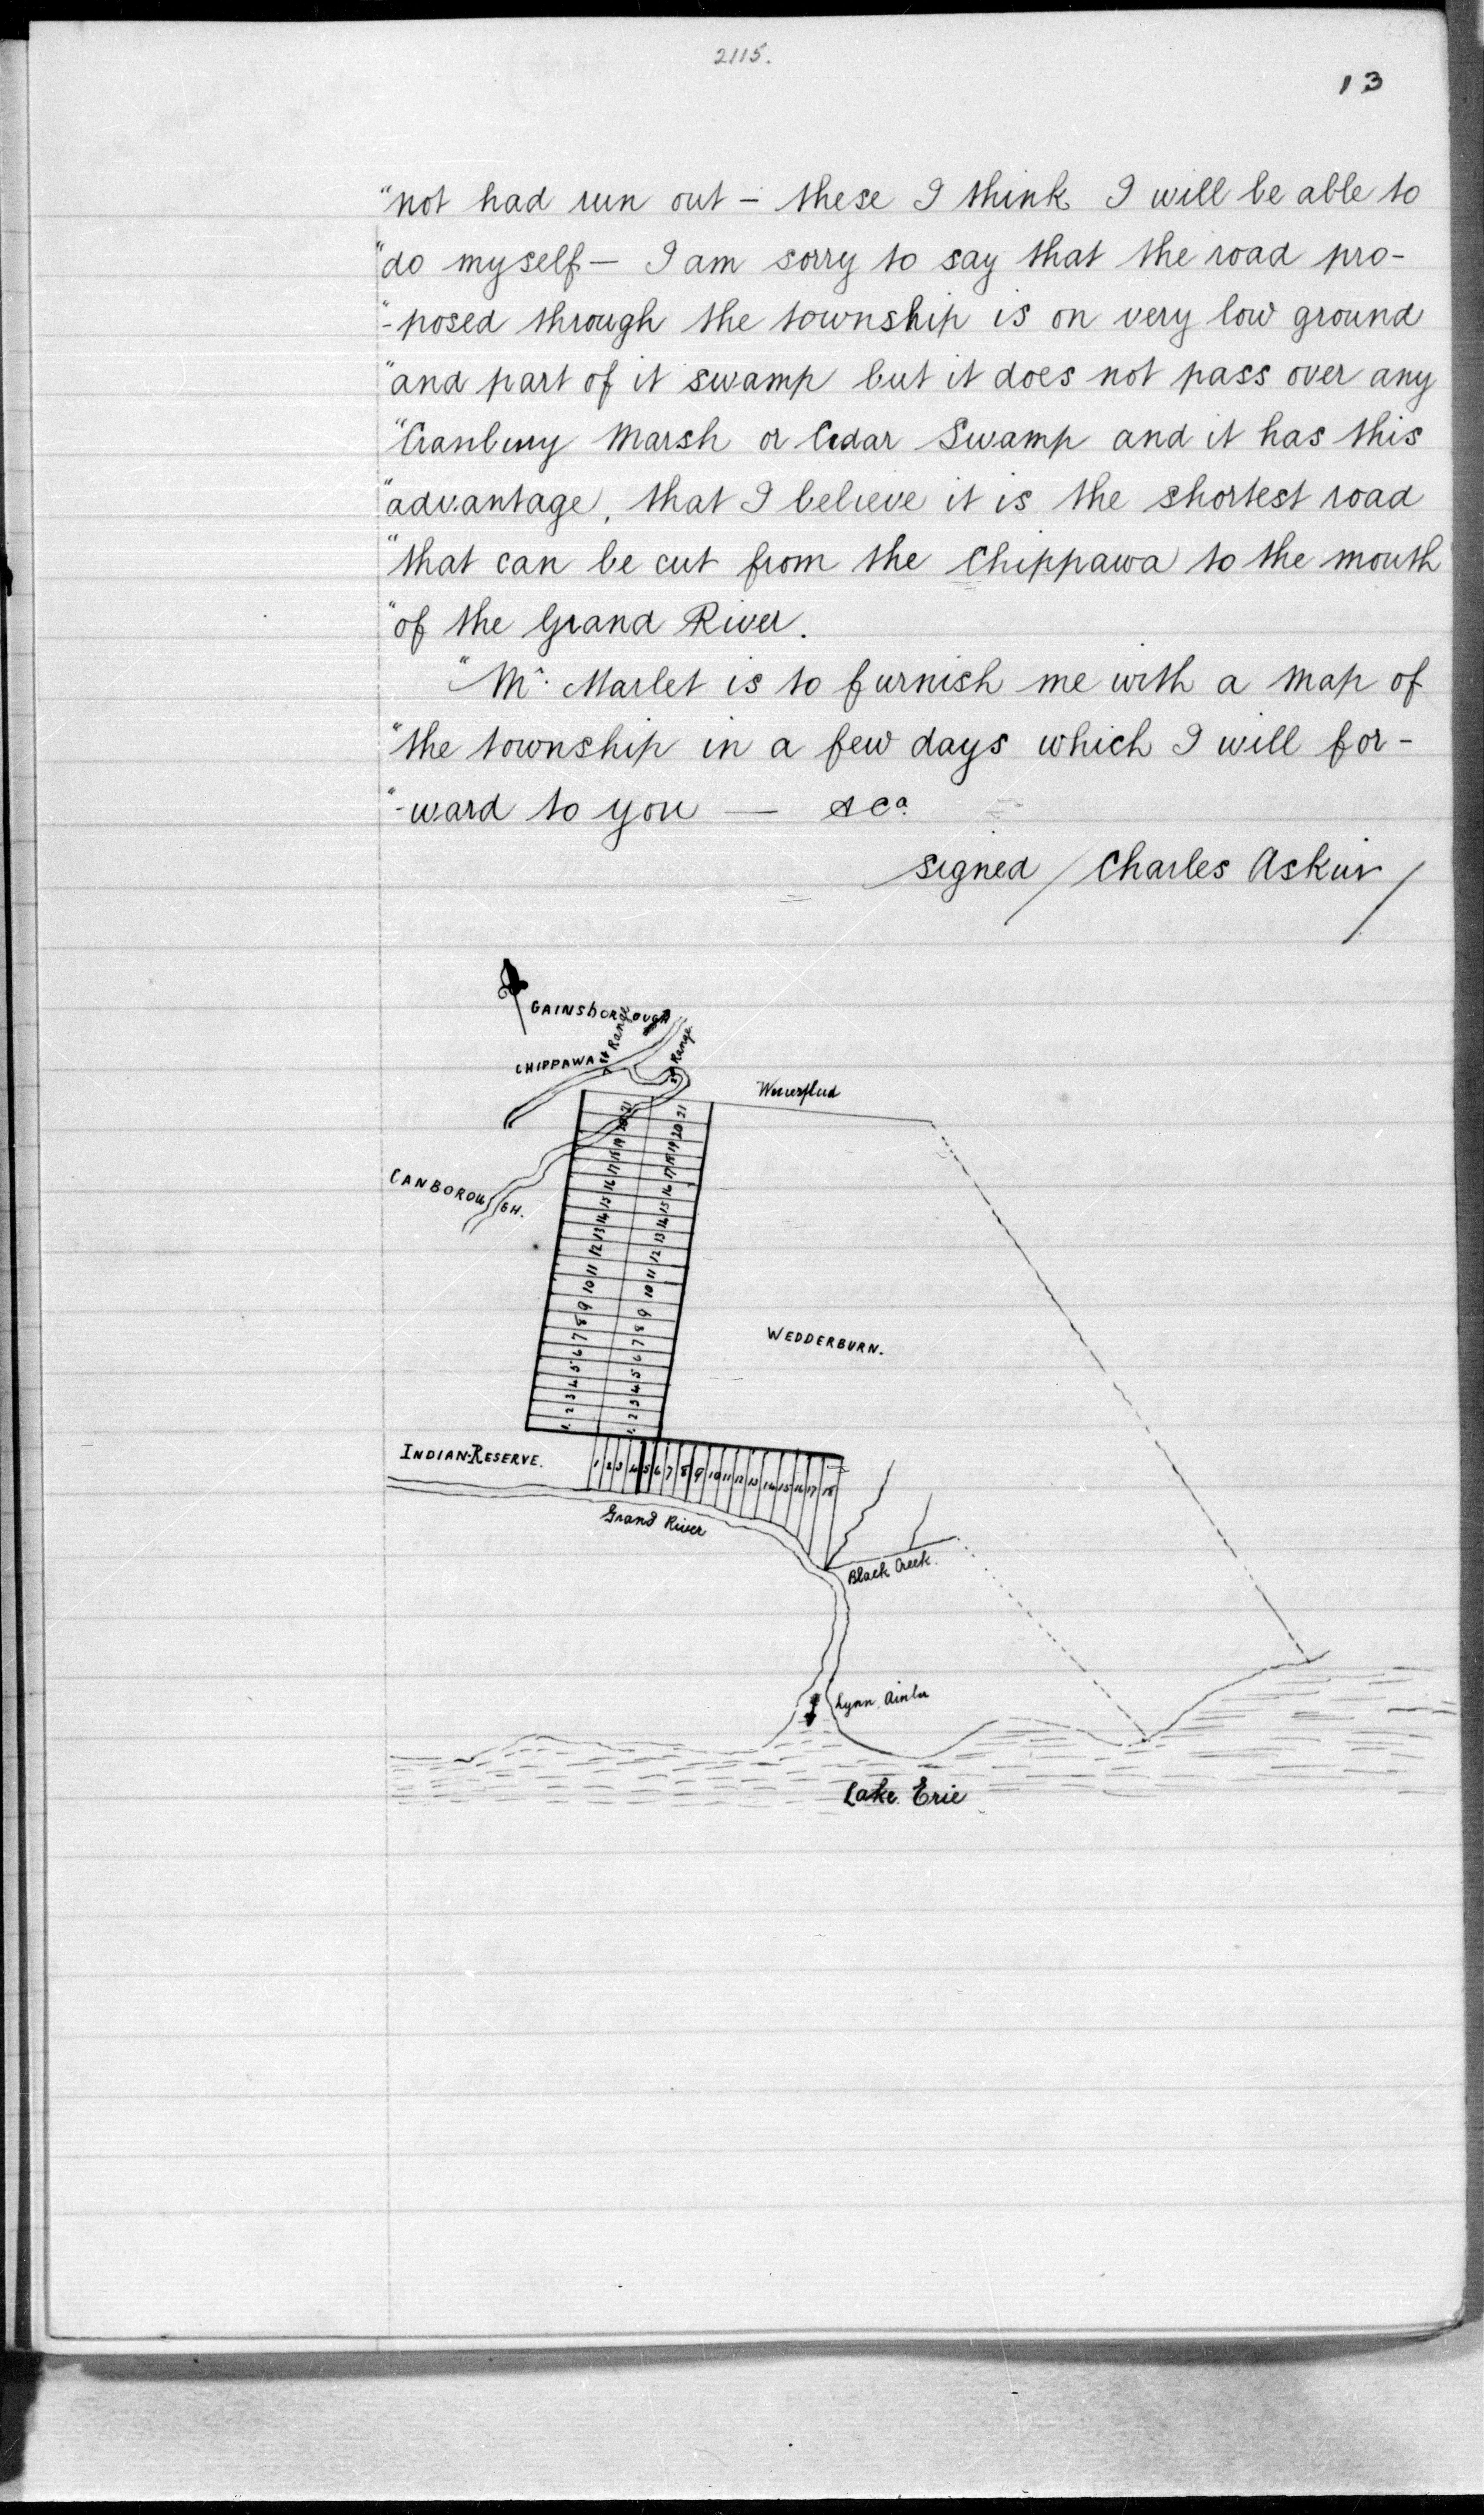 2115.
13
"not had run out – these I think I will be able to
"do myself — I am sorry to say that the road pro-
"-posed through the township is on very low ground
"and part of it swamp but it does not pass over any
"Cranbury Marsh or Cedar Swamp and it has this
"advantage, that I believe it is the shortest road
"that can be cut from the Chippawa to the mouth
"of the Grand River.
"Mr. Marlet is to furnish me with a map of
"the township in a few days which I will for-
"-ward to you — &ca.
signed / Charles Askin /
GAINSBOROUGH
1st Range
2nd Range
CHIPPAWA
CANBOROUGH.
21 20 19 18 17 16 15 14 13 12 11 10 9 8 7 6 5 4 3 2 1
21 20 19 18 17 16 15 14 13 12 11 10 9 8 7 6 5 4 3 2 1
WEDDERBURN.
INDIAN RESERVE.
1 2 3 4 5 6 7 8 9 10 11 12 13 14 15 16 17 18
Grand River
Black Creek.
Lynn
Lake Erie